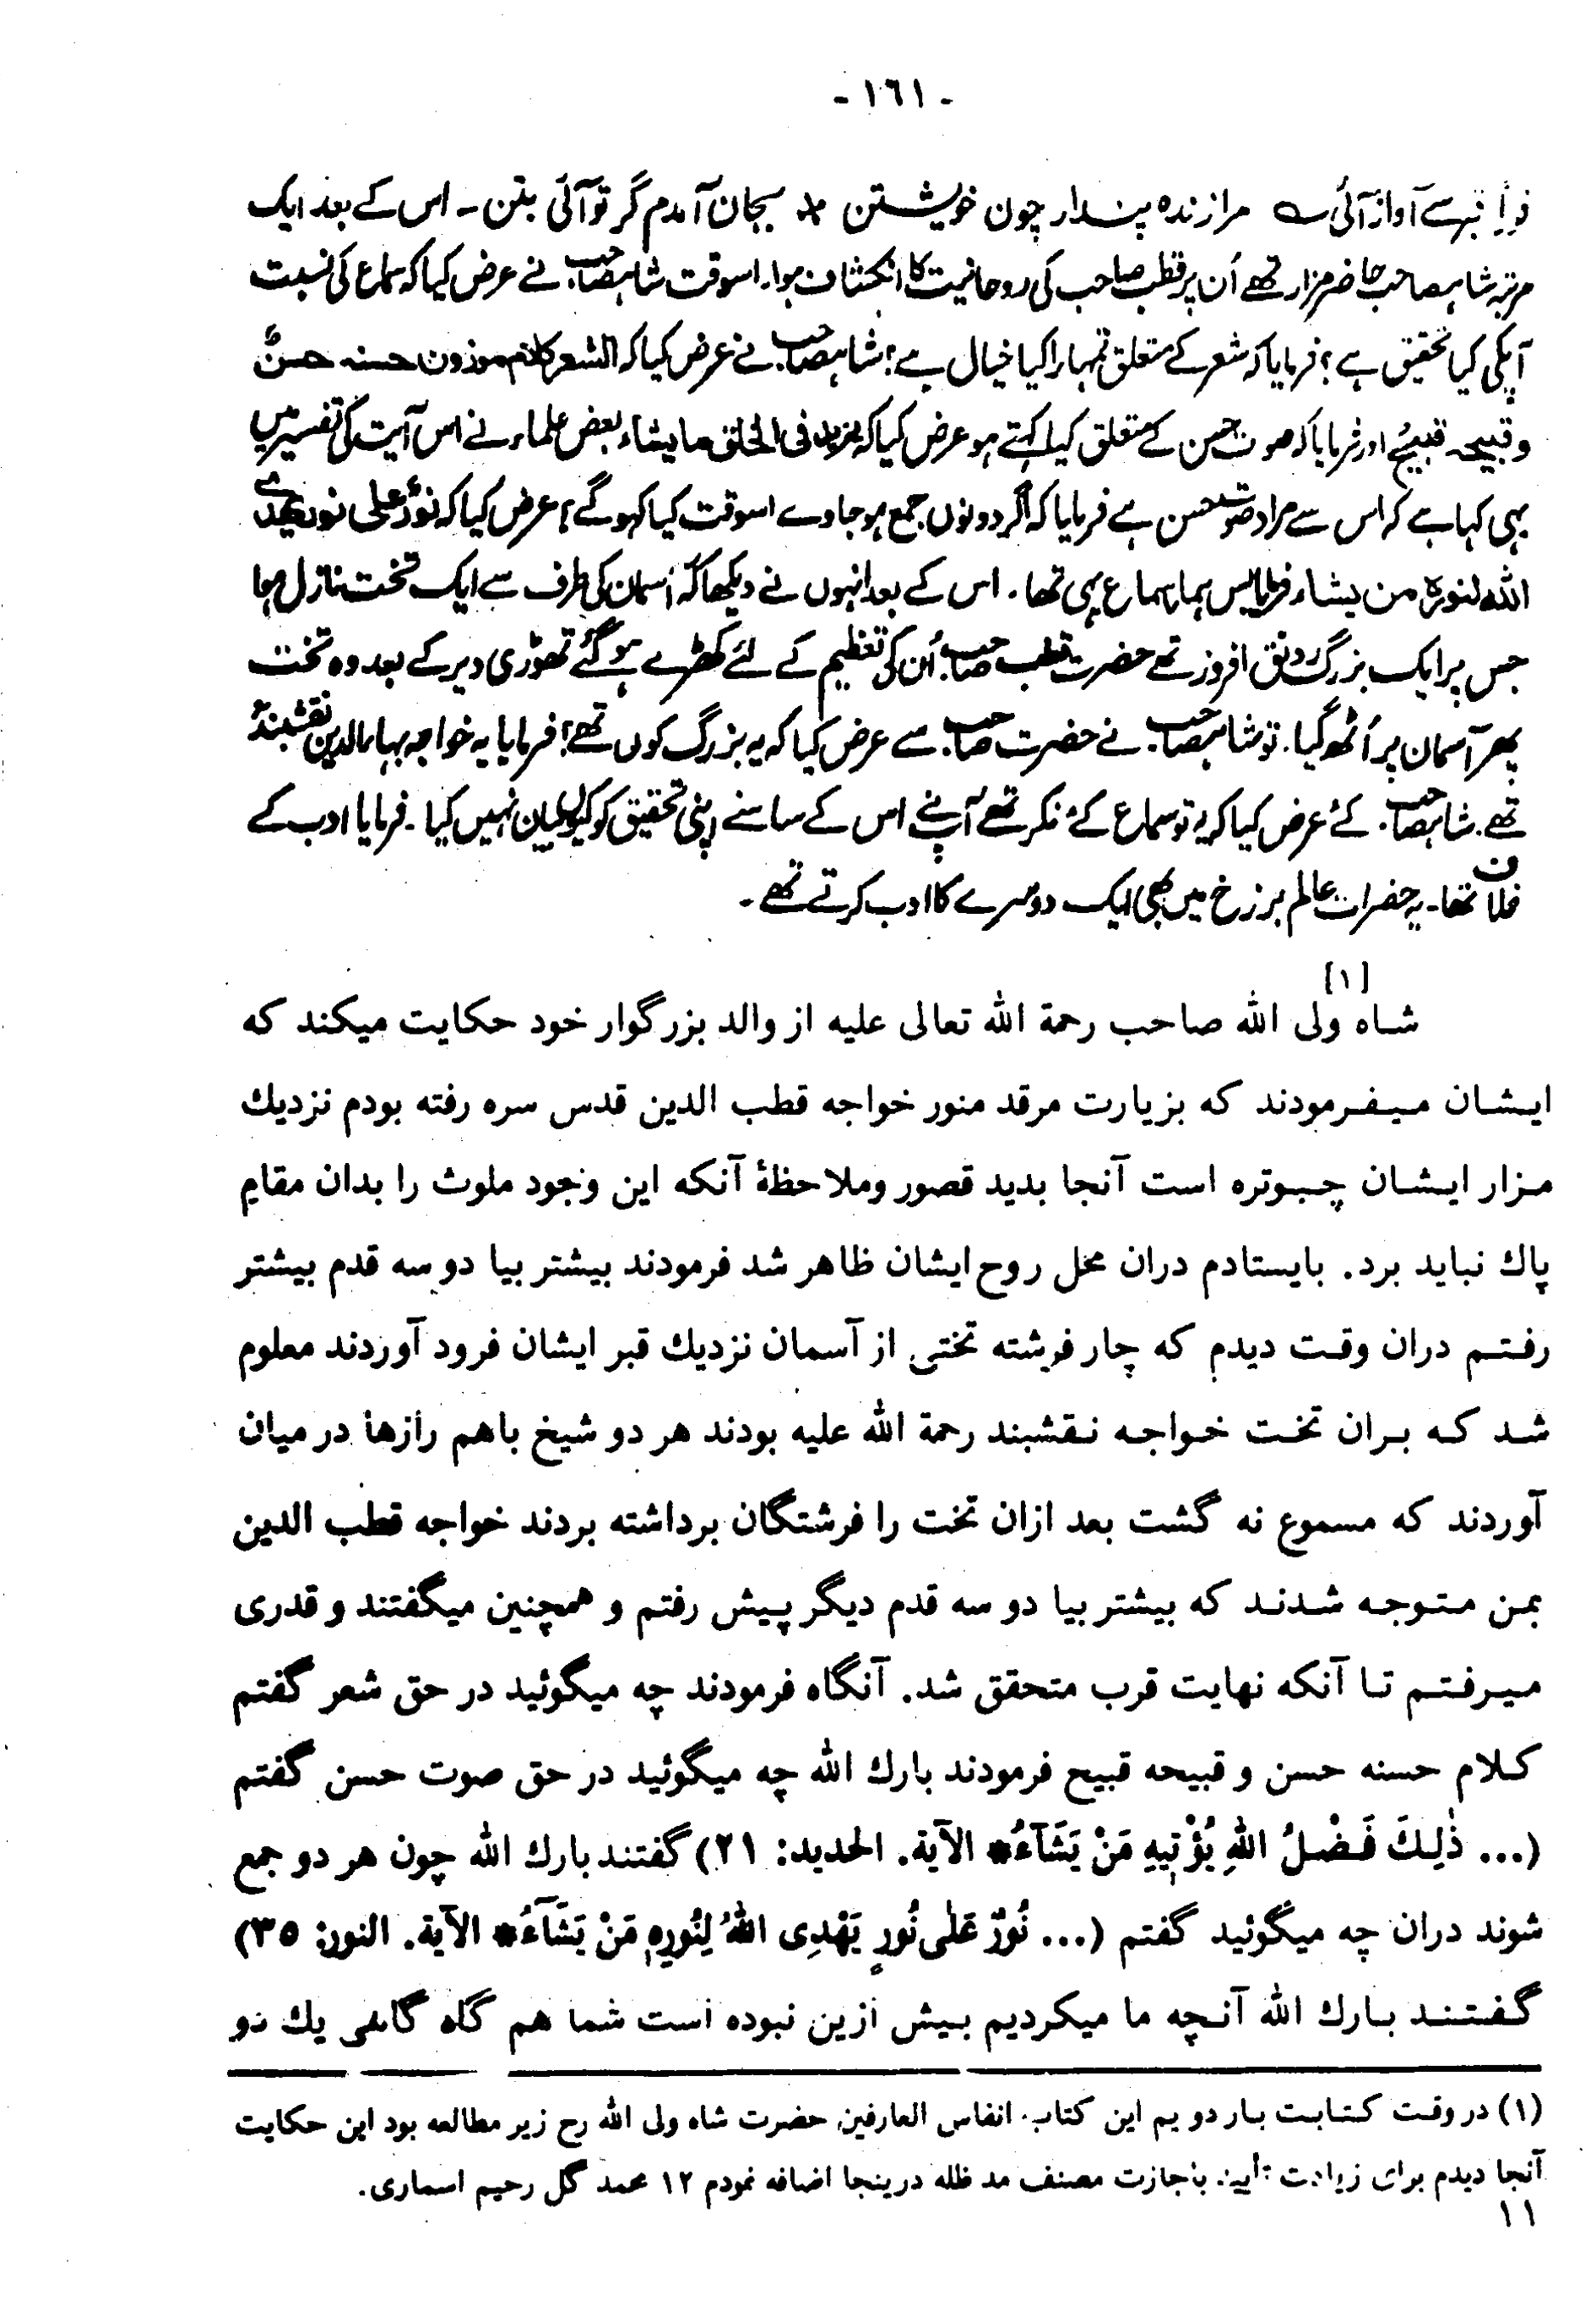 - ١٦١ -
فوراً قبر سے آواز آئی ؎ مرا زنده پندار چون خویشتن * بجان آمدم گر تو آئی بتن - اس کے بعد ایک
مرتبہ شاہصاحب حاضر مزار تھے اُن پر قطب صاحب کی روحانیت کا انکشاف ہوا. اسوقت شاہصاحب نے عرض کیا کہ سماع کی نسبت
آپکی کیا تحقیق ہے؟ فرمایا کہ شعر کے متعلق تمہارا کیا خیال ہے؟ شاہصاحب نے عرض کیا کہ الشعر کلام موزون حسنہ حسنٌ
و قبیحہ قبیحٌ اور فرمایا کہ صوت حسن کے متعلق کیا کہتے ہو عرض کیا کہ یزید فی الخلق ما یشاء بعض علماء نے اس آیت کی تفسیر میں
یہی کہا ہے کہ اس سے مراد صوت حسن ہے فرمایا کہ اگر دونوں جمع ہو جاوے اسوقت کیا کہو گے؟ عرض کیا کہ نورٌ علی نور یهدی
الله لنوره من یشاء فرمایا بس ہمارا سماع یہی تھا. اس کے بعد انہوں نے دیکھا کہ آسمان کی طرف سے ایک تخت نازل ہوا
جس پر ایک بزرگ رونق افروز تھے حضرت قطب صاحب اُن کی تعظیم کے لئے کھڑے ہو گئے تھوڑی دیر کے بعد وہ تخت
پھر آسمان پر اُٹھ گیا. تو شاہصاحب نے حضرت صاحب سے عرض کیا کہ یہ بزرگ کون تھے؟ فرمایا یہ خواجہ بہاء الدین نقشبندؒ
تھے. شاہصاحب نے عرض کیا کہ یہ تو سماع کے منکر تھے آپنے اس کے سامنے اپنی تحقیق کو کیوں بیان نہیں کیا - فرمایا ادب کے
خلاف تھا - یہ حضرات عالم برزخ میں بھی ایک دوسرے کا ادب کرتے تھے -
شاه [١] ولی الله صاحب رحمة الله تعالی علیه از والد بزرگوار خود حکایت میکند که
ایشان میفرمودند که بزیارت مرقد منور خواجه قطب الدین قدس سره رفته بودم نزدیك
مزار ایشان چبوتره است آنجا بدید قصور وملاحظۀ آنکه این وجود ملوث را بدان مقام
پاك نباید برد. بایستادم دران محل روح ایشان ظاهر شد فرمودند بیشتر بیا دو سه قدم بیشتر
رفتم دران وقت دیدم که چار فرشته تختی از آسمان نزدیك قبر ایشان فرود آوردند معلوم
شد که بران تخت خواجه نقشبند رحمة الله علیه بودند هر دو شیخ باهم رازها در میان
آوردند که مسموع نه گشت بعد ازان تخت را فرشتگان برداشته بردند خواجه قطب الدین
بمن متوجه شدند که بیشتر بیا دو سه قدم دیگر پیش رفتم و همچنین میگفتند و قدری
میرفتم تا آنکه نهایت قرب متحقق شد. آنگاه فرمودند چه میگوئید در حق شعر گفتم
کلام حسنه حسن و قبیحه قبیح فرمودند بارك الله چه میگوئید در حق صوت حسن گفتم
(... ذٰلِكَ فَضْلُ اللهِ يُؤْتِيهِ مَنْ يَشَآءُ* الآية. الحديد: ٢١) گفتند بارك الله چون هر دو جمع
شوند دران چه میگوئید گفتم (... نُورٌ عَلٰى نُورٍ يَهْدِى اللهُ لِنُورِهِ مَنْ يَشَآءُ* الآية. النور: ٣٥)
گفتند بارك الله آنچه ما میکردیم بیش ازین نبوده است شما هم گاه گاهی یك دو
(١) در وقت کتابت بار دویم این کتاب. انفاس العارفین حضرت شاه ولی الله رح زیر مطالعه بود این حکایت
آنجا دیدم برای زیادت تأیید باجازت مصنف مد ظله درینجا اضافه نمودم ١٢ محمد گل رحیم اسماری.
١١